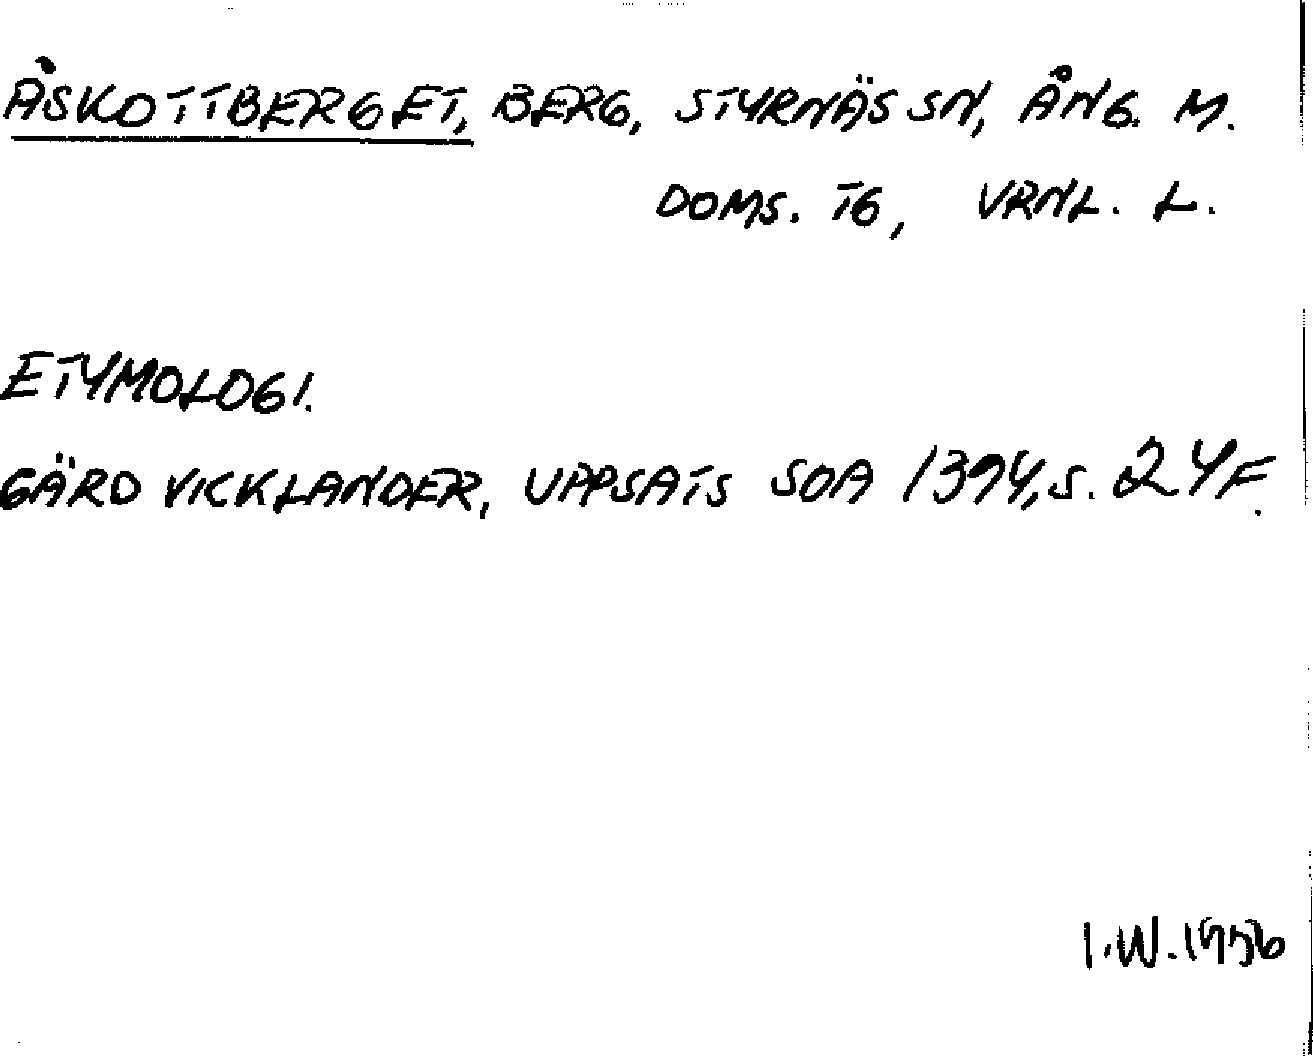 ÅSKOTTBERGET, BERG, STYRNÄS SN, ÅNG. M.
DOMS. TG, VRNL. L.
ETYMOLOGI.
GÄRD VICKLANDER, UPPSATS SOA 1394, S. 24F.
I.W. 1956